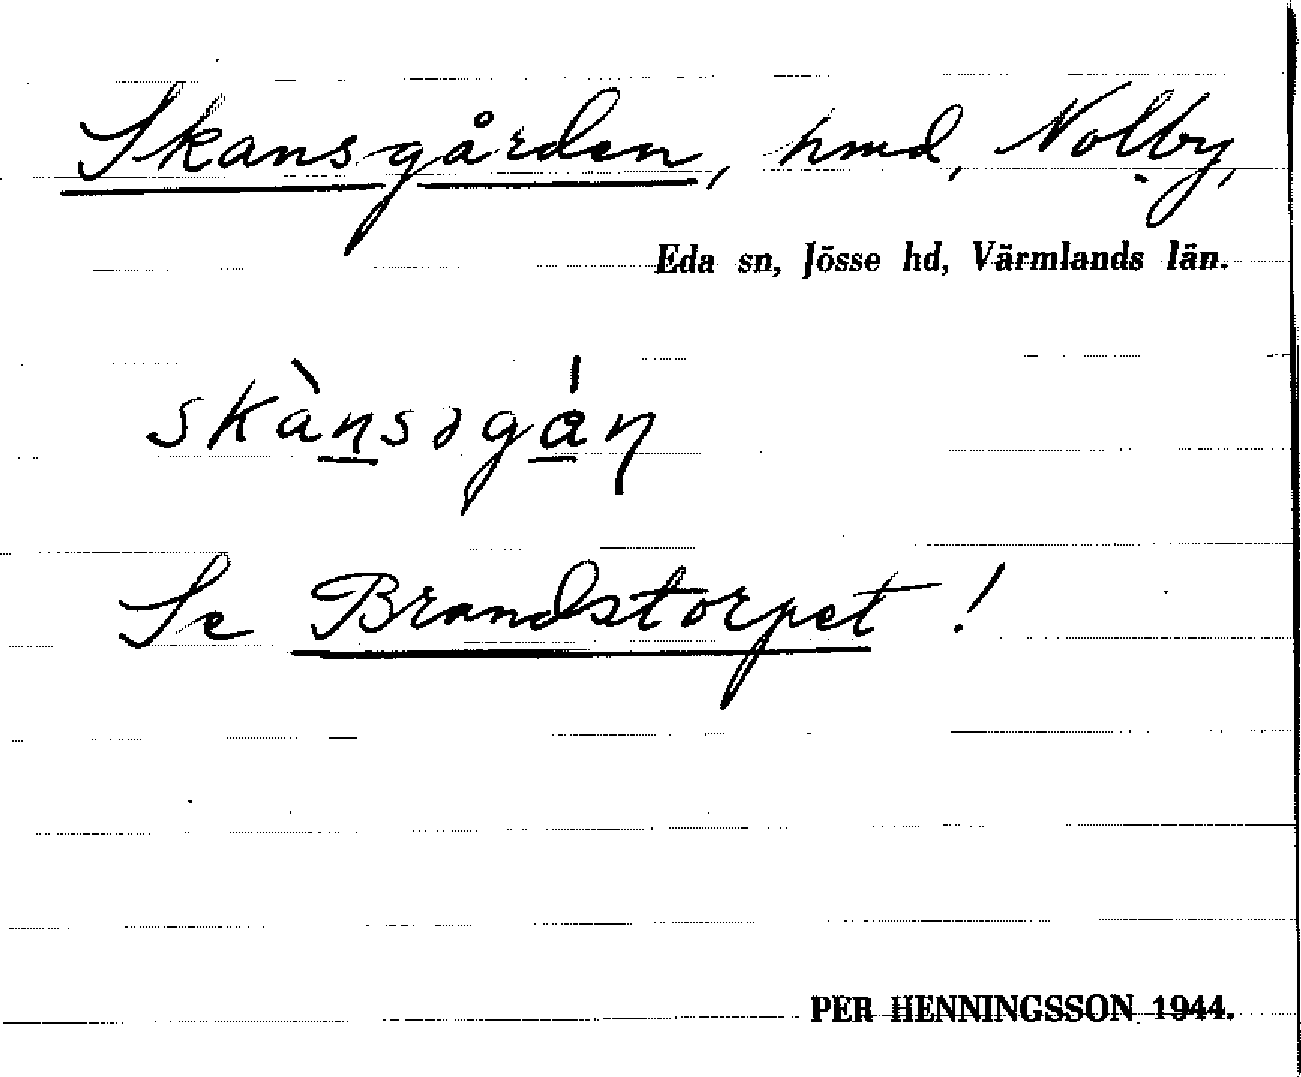 Skansgården, hmd, Nolby,
Eda sn, Jösse hd, Värmlands län.
skànsəgán
Se Brandstorpet!
PER HENNINGSSON 1944.